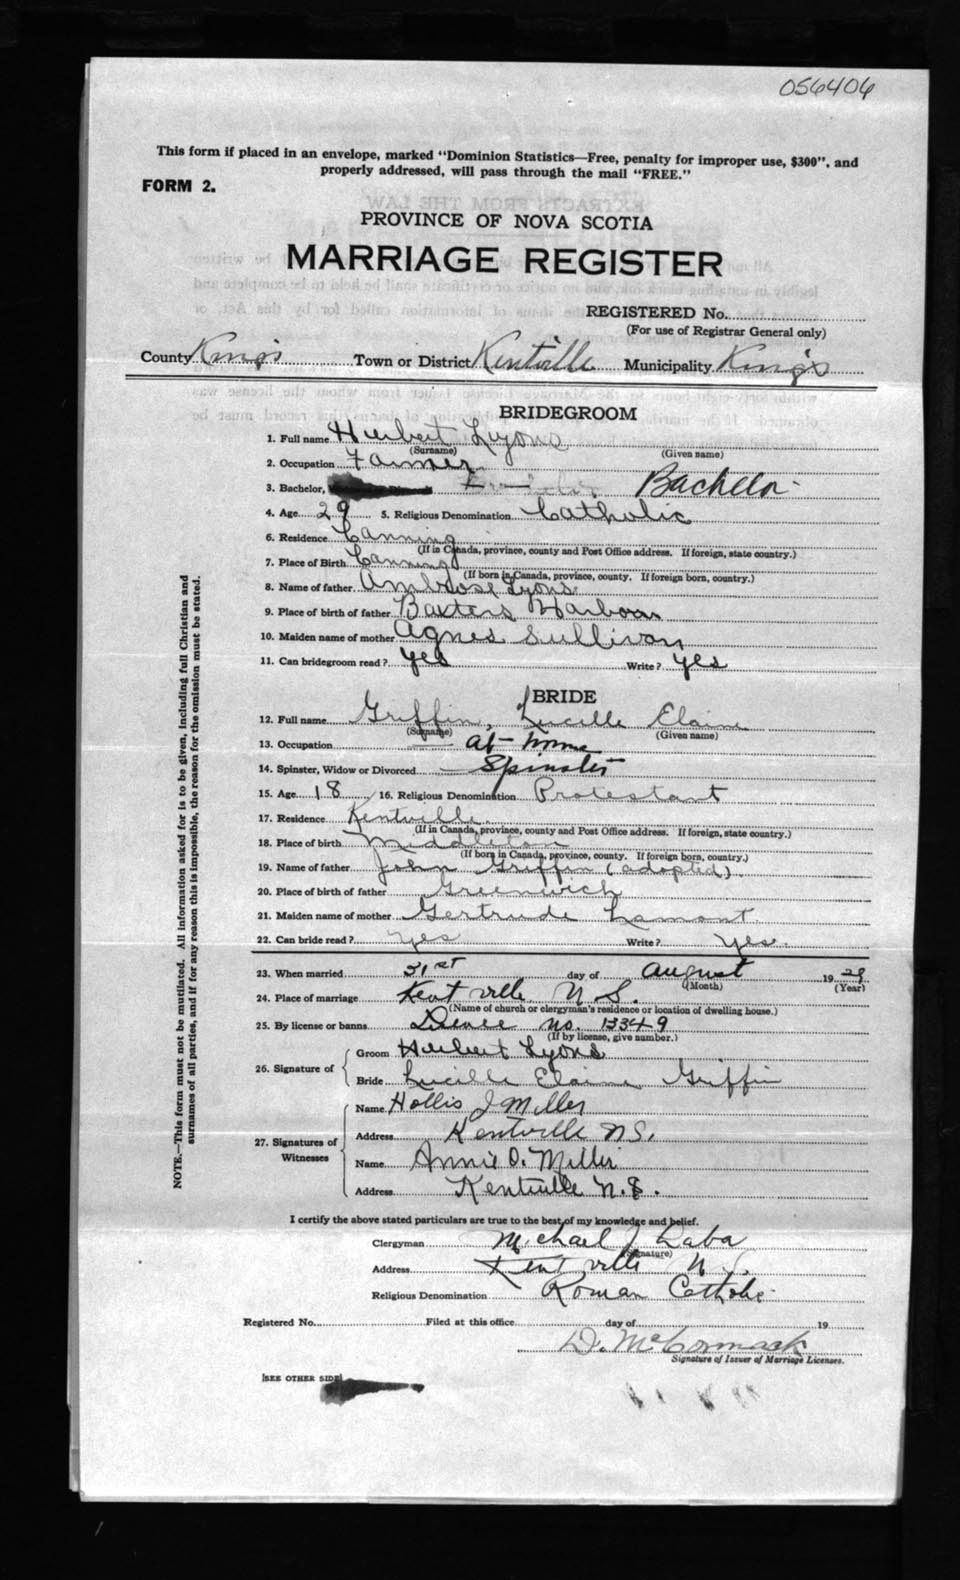 056406
This form if placed in an envelope, marked "Dominion Statistics—Free, penalty for improper use, $300", and
properly addressed, will pass through the mail "FREE."
FORM 2.
PROVINCE OF NOVA SCOTIA
MARRIAGE REGISTER
REGISTERED No.
(For use of Registrar General only)
County Kings Town or District Kentville Municipality Kings
BRIDEGROOM
1. Full name Herbert Lyons
(Surname) (Given name)
2. Occupation Farmer
3. Bachelor, Bachelor
4. Age 29 5. Religious Denomination Catholic
6. Residence Canning
(If in Canada, province, county and Post Office address. If foreign, state country.)
7. Place of Birth Canning
(If born in Canada, province, county. If foreign born, country.)
8. Name of father Ambrose Lyons
9. Place of birth of father Baxters Harbour
10. Maiden name of mother Agnes Sullivan
11. Can bridegroom read? yes Write? yes
BRIDE
12. Full name Griffin, Lucille Elaine
(Surname) (Given name)
13. Occupation at home
14. Spinster, Widow or Divorced Spinster
15. Age 18 16. Religious Denomination Protestant
17. Residence Kentville
(If in Canada, province, county and Post Office address. If foreign, state country.)
18. Place of birth Middleton
(If born in Canada, province, county. If foreign born, country.)
19. Name of father John Griffin (adopted)
20. Place of birth of father Greenwich
21. Maiden name of mother Gertrude Lamont
22. Can bride read? Yes Write? Yes.
23. When married 31st day of August 1929
(Month) (Year)
24. Place of marriage Kentville N S.
(Name of church or clergyman's residence or location of dwelling house.)
25. By license or banns no. 13349
(If by license, give number.)
26. Signature of
Groom Herbert Lyons
Bride Lucille Elaine Griffin
27. Signatures of Witnesses
Name Hollis J Miller
Address Kentville N.S.
Name Annie D. Miller
Address Kentville N.S.
I certify the above stated particulars are true to the best of my knowledge and belief.
Clergyman Michael J Laba
(Signature)
Address Kentville N S.
Religious Denomination Roman Catholic
Registered No. Filed at this office day of 19
D. McCormack
Signature of Issuer of Marriage Licenses.
[SEE OTHER SIDE]
NOTE.—This form must not be mutilated. All information asked for is to be given, including full Christian and
surnames of all parties, and if for any reason this is impossible, the reason for the omission must be stated.